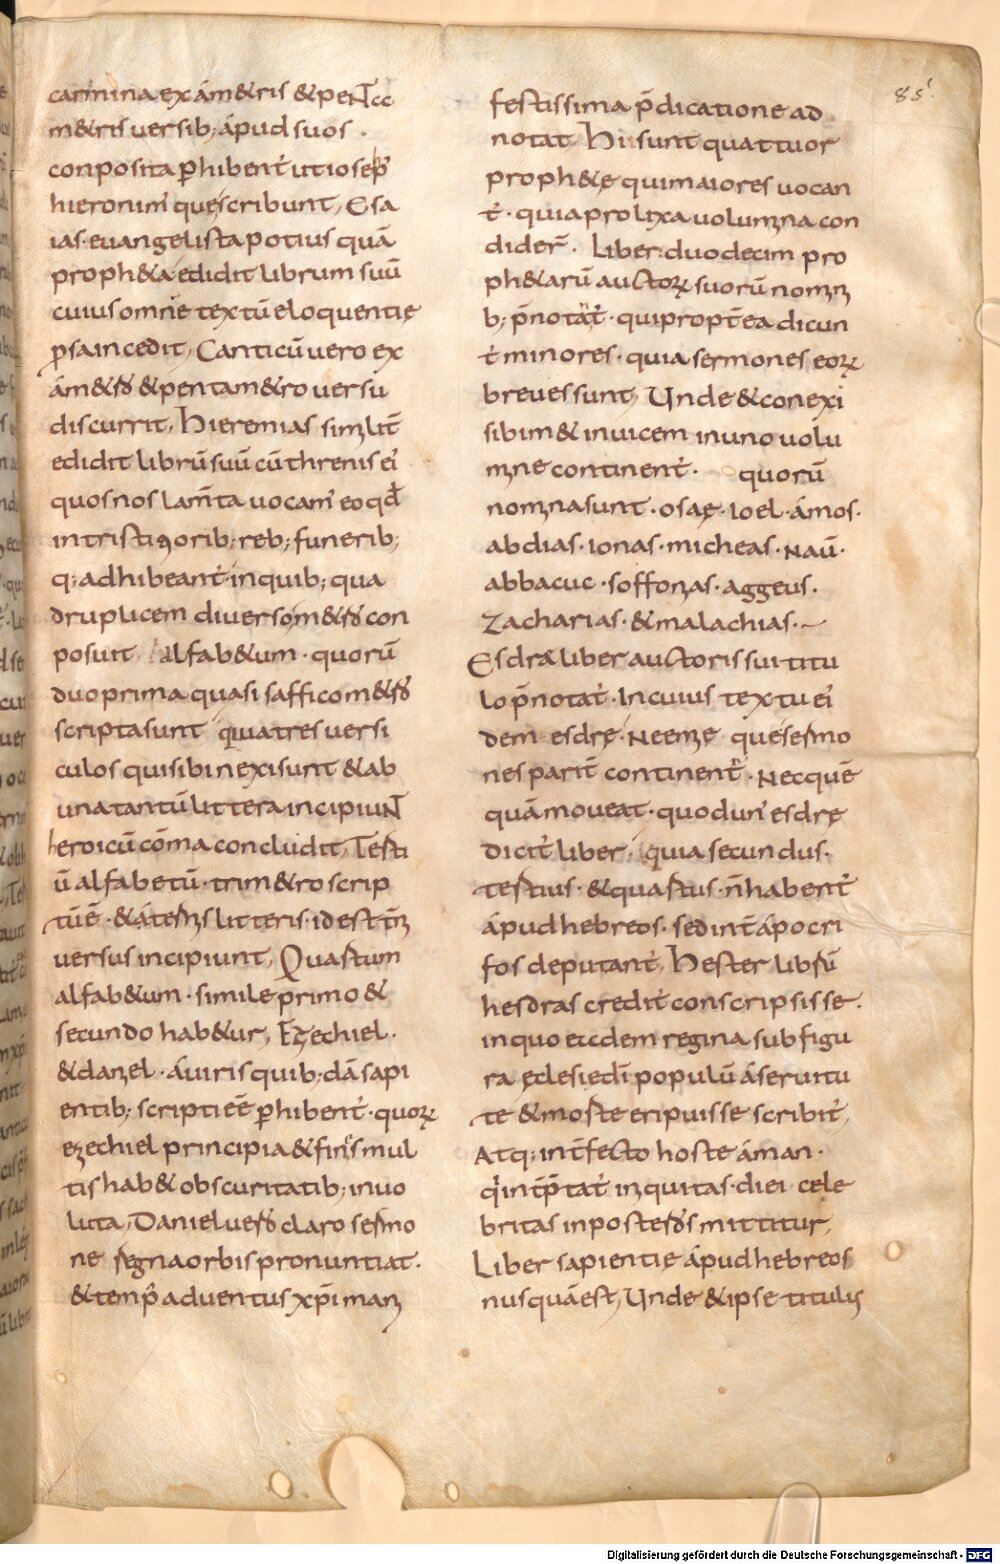 carmina exám&ris & penTcc
m&ris uersib; ápud suos .
conposita phibent ut ioseph'
hieronim' que scribunt, Esa
ias euangelista potius quā
proph&a edidit librum suū
cuius omne textū eloquentię
psa incedit, Canticū uero ex
ám&ro & pentam&ro uersu
discurrit, Hieremias similit̄
edidit librū suū cū threnis ei'
quos nos lam̄ta uocam' eo qd
in tristiorib; reb; funerib;
q; adhibeant inquib; qua
druplicem diuerso m&ro con
posuit alfab&um · quorū
duo prima quasi saffico m&ro
scripta sunt quia tres uersi
culos qui sibi nexi sunt & ab
una tantū littera incipiuNT
heroicū cōma concludit, Terti
ū alfabetū · trim&ro scrip
tū ē · & á ternis litteris · id est t̄ni
uersus incipiunt, Quartum
alfab&um · simile primo &
secundo hab&ur, Ezechiel ·
& daniel · áuiris quib; dā sapi
entib; scripti eē phibent · quorꝝ
ezechiel principia & finis mul
tis hab& obscuritatib; inuo
luta, Daniel uero claro sermo
ne regna orbis pronuntiat ·
& temp̄ aduentus xp̄i mani
85'.
festissima p̄dicatione ad
notat Hii sunt quattuor
proph&ę qui maiores uocan
t̄ · quia prolixa uolumina con
dider̄ · Liber duodecim pro
ph&arū auctorꝝ suorū nomini
b; p̄notat̄ · qui propt̄ea dicun
t̄ minores · quia sermones eorꝝ
breues sunt, Unde & conexi
sibim& inuicem in uno uolu
mine continent̄ · quorū
nomina sunt · osaę · ioel · ámos ·
abdias · ionas · micheas · naū ·
abbacuc · soffonias · aggeus ·
Zacharias · & malachias ·
Esdrae liber auctoris sui titu
lo p̄notat̄ · In cuius textu ei'
dem esdrę · Neemię que sermo
nes parit̄ continent̄ · Nec quē
quā moueat · quod un' esdrę
dicit̄ liber · quia secundus ·
tertius · & quartus · n̄ habent̄
ápud hebreos · sed int̄ ápocri
fos deputant̄, Hester librū
hesdras credit̄ conscripsisse ·
in quo eccdem regina sub figu
ra ęclesię di populū á seruitu
te & morte eripuisse scribit̄,
Atq; int̄fecto hoste áman ·
q̄ int̄p̄tat̄ iniquitas · diei cele
britas in posteros mittitur,
Liber sapientię ápud hebreos
nusquā est, Unde & ipse titulis
Digitalisierung gefördert durch die Deutsche Forschungsgemeinschaft - DFG